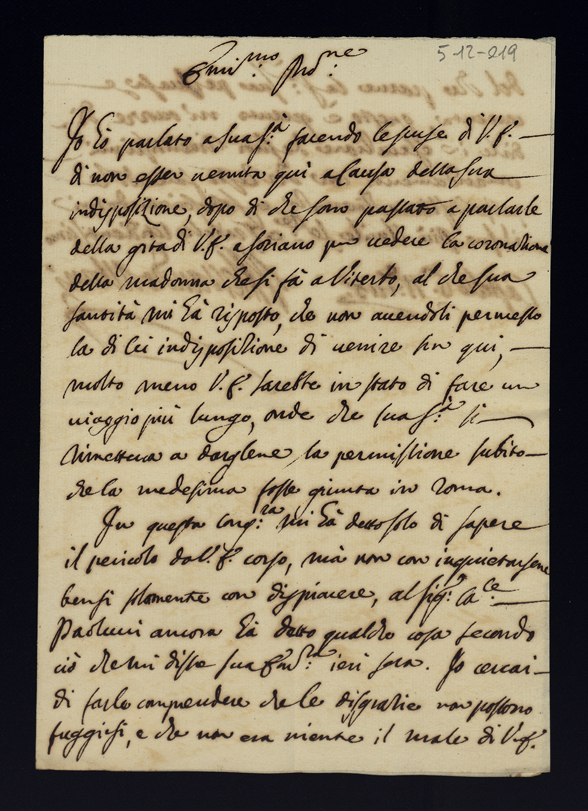 5-12-219
Emi.mo Pnō.ne
Io hò parlato a sua S.tà facendo le scuse di V.E.
di non esser venuta qui a causa della sua
indisposizione, dopo di che sono passato a parlarle
della gita di V.E. a Soriano per vedere la coronatione
della madonna che si fà a Viterbo, al che sua
santità mi hà risposto, che non avendoli permesso
la di lei indisposizione di venire fin qui,
molto meno V.E. sarebbe in stato di fare un
viaggio più lungo, onde che sua S.tà si
rimetteva a dargliene la permissione subito
che la medesima fosse giunta in Roma.
In questa cong.ra mi hà detto solo di sapere
il pericolo da V.E. corso, mà non con inquietarsene
bensì solamente con dispiacere, al sig.r Ca.ce
Paolucci ancora hà detto qualche cosa secondo
ciò che mi disse sua Em.za ieri sera. Io cercai
di farle comprendere che le disgrazie non possono
fuggirsi, e che non era niente il male di V.E.